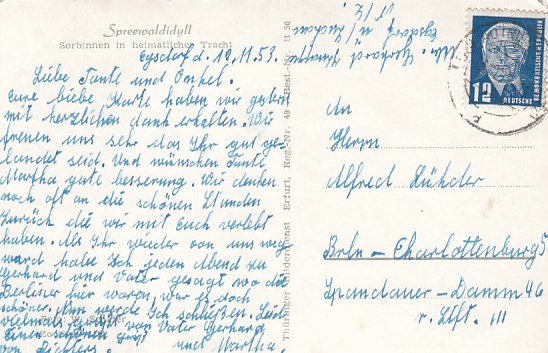 Spreewaldidyll
Sorbinnen in heimatlicher Tracht
Egsdorf d. 19.11.53.
Liebe Tante und Onkel.
Eure liebe Karte haben wir gestern
mit herzlichen dank erhalten. Wir
freuen uns sehr das Ihr gut ge-
landet seid. Und wünschen Tante
Martha gute besserung. Wir denken
noch oft an die schönen Stunden
zurück die wir mit Euch verlebt
haben. Als Ihr wieder von uns weg
ward habe Ich jeden Abend zu
Gerhard und Vater gesagt wo die
Berliner hier waren, war es doch
schöner. Nun werde Ich schließen. Seid
vielmals gegrüßt von Vater Gerhard
und Martha.
Einen schönen gruß
von Richters.
Thüringer Bilderdienst Erfurt, Reg.-Nr. 49 Best.-Nr. 11 50
Gerhard
Egsdorf
12
DEUTSCHE
DEMOKRATISCHE REPUBLIK
An
Herrn
Alfred
Brln-Charlottenburg 5
Spandauer-Damm 46
r. Sftfl. III